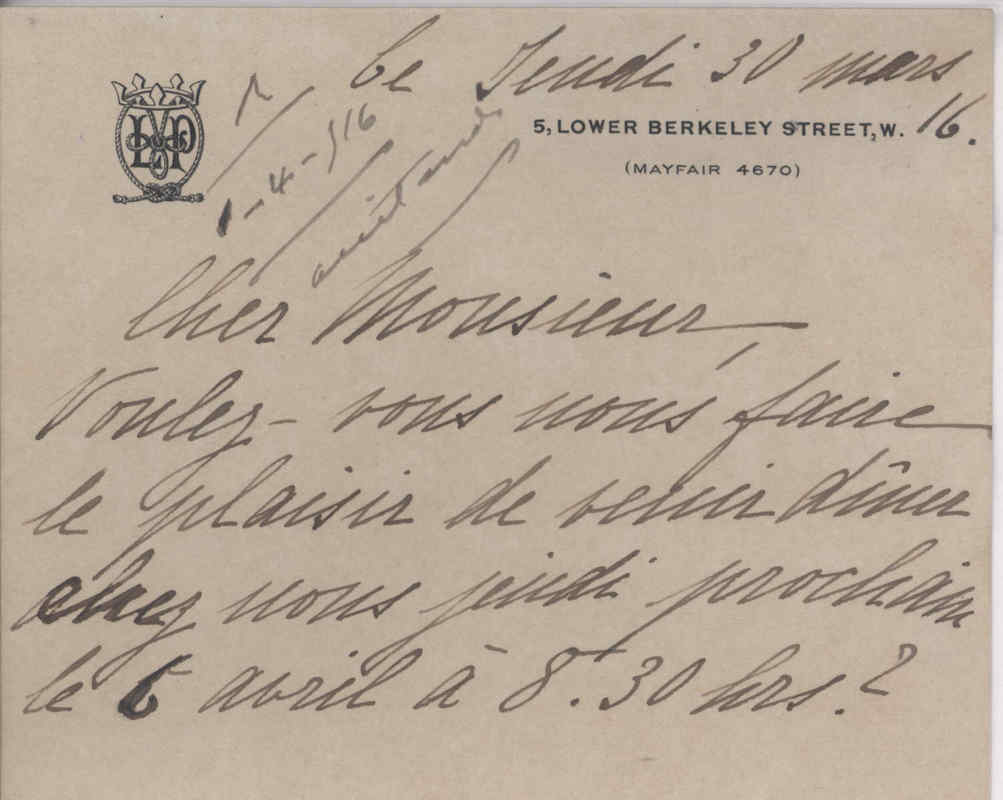 Ce Jeudi 30 mars
16.
5, LOWER BERKELEY STREET, W.
(MAYFAIR 4670)
1-4-916
Cher Monsieur,
Voulez-vous nous faire
le plaisir de venir dîner
chez nous jeudi prochain
le 6 avril à 8.30 hrs.?